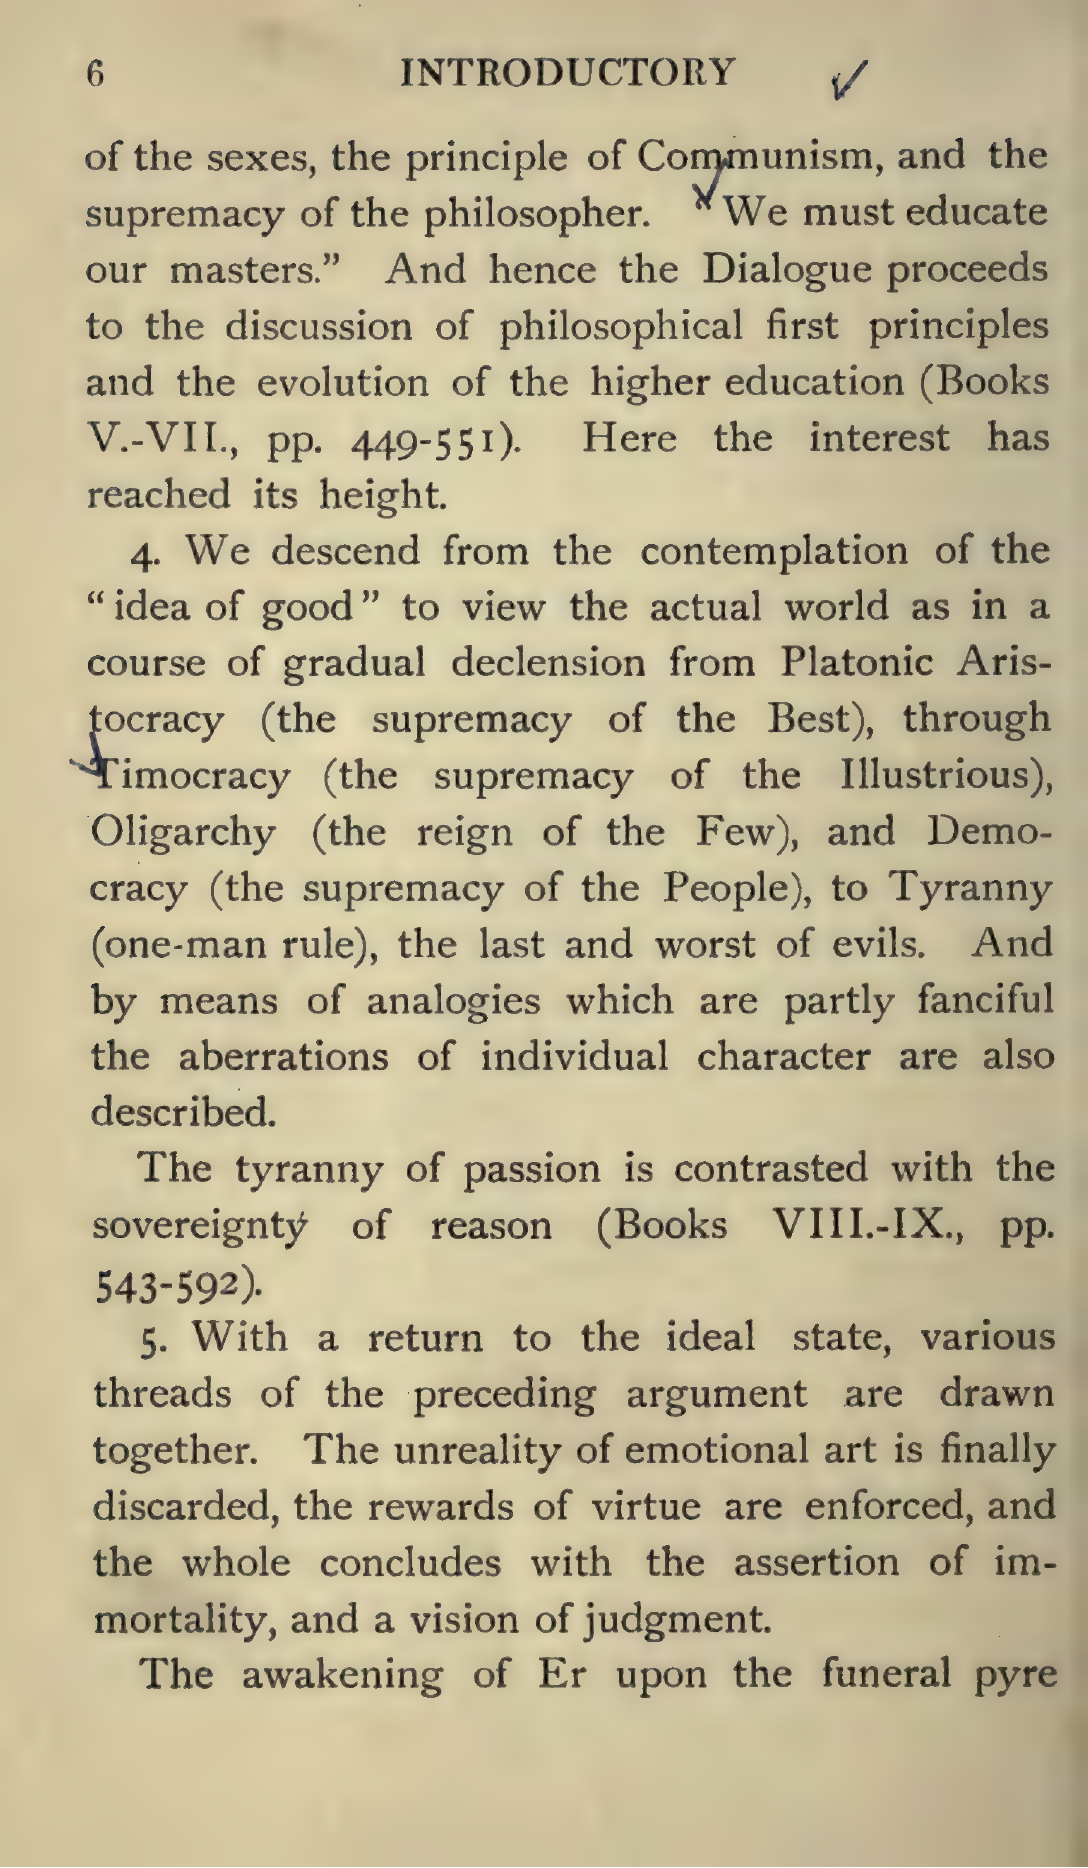 6 INTRODUCTORY
of the sexes, the principle of Communism, and the
supremacy of the philosopher. “We must educate
our masters.” And hence the Dialogue proceeds
to the discussion of philosophical first principles
and the evolution of the higher education (Books
V.-VII., pp. 449-551). Here the interest has
reached its height.
4. We descend from the contemplation of the
“idea of good” to view the actual world as in a
course of gradual declension from Platonic Aris-
tocracy (the supremacy of the Best), through
Timocracy (the supremacy of the Illustrious),
Oligarchy (the reign of the Few), and Demo-
cracy (the supremacy of the People), to Tyranny
(one-man rule), the last and worst of evils. And
by means of analogies which are partly fanciful
the aberrations of individual character are also
described.
The tyranny of passion is contrasted with the
sovereignty of reason (Books VIII.-IX., pp.
543-592).
5. With a return to the ideal state, various
threads of the preceding argument are drawn
together. The unreality of emotional art is finally
discarded, the rewards of virtue are enforced, and
the whole concludes with the assertion of im-
mortality, and a vision of judgment.
The awakening of Er upon the funeral pyre